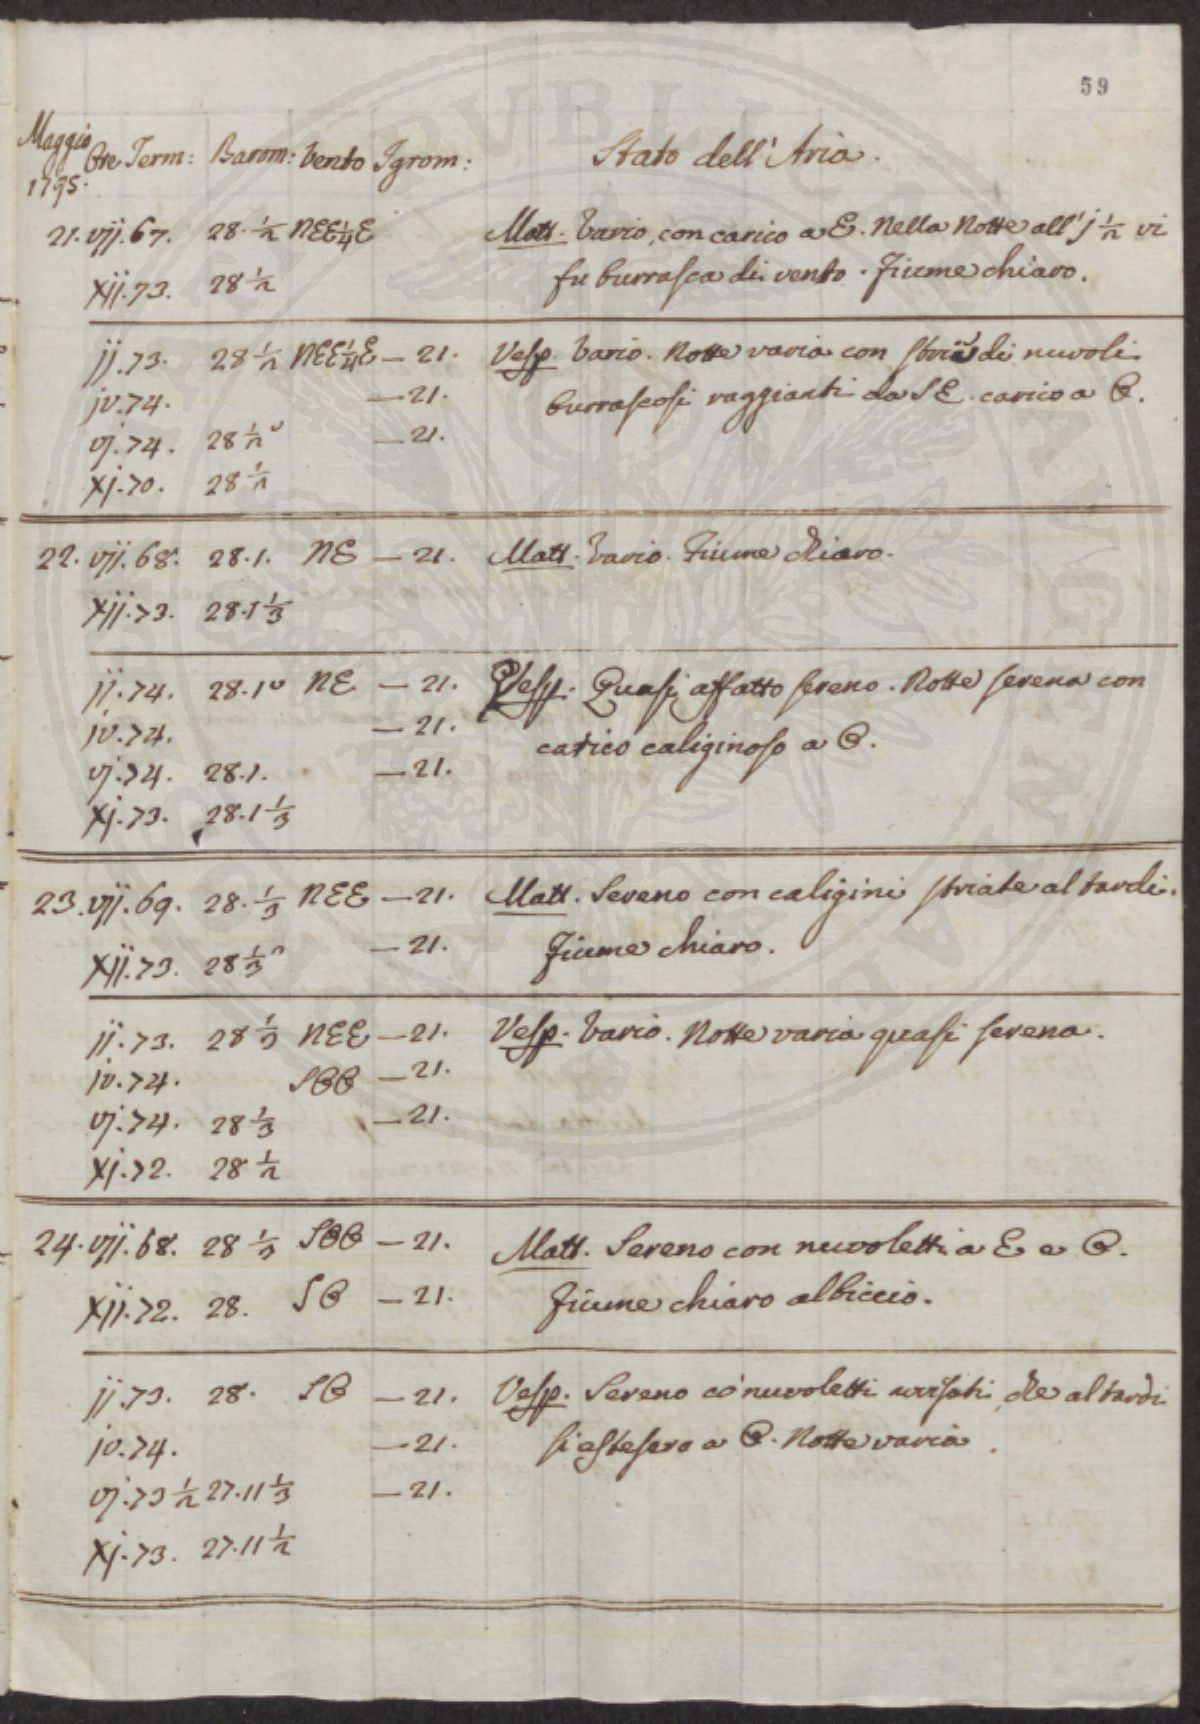 59
Maggio 1795. Ore Term: Barom: Vento Igrom: Stato dell'Aria.
21. vij. 67. 28. ½ NEE¼E Matt. Vario, con carico a E. Nella Notte all' j ½ vi
xij. 73. 28 ½ fu burrasca di vento. Fiume chiaro.
ij. 73. 28 ½ NEE¼E — 21. Vesp. Vario. Notte varia con strie di nuvoli
iv. 74. — 21. burrascosi raggianti da SE. carico a O.
vj. 74. 28 ½ — 21.
xj. 70. 28 ½
22. vij. 68. 28. 1. NE — 21. Matt. Vario. Fiume chiaro.
xij. 73. 28. 1 ⅓
ij. 74. 28. 1 NE — 21. Vesp. Quasi affatto sereno. Notte serena con
iv. 74. — 21. carico caliginoso a O.
vj. 74. 28. 1. — 21.
xj. 73. 28. 1 ⅓
23. vij. 69. 28. ⅓ NEE — 21. Matt. Sereno con caligini striate al tardi.
xij. 73. 28 ⅓ — 21. Fiume chiaro.
ij. 73. 28 ⅓ NEE — 21. Vesp. Vario. Notte varia quasi serena.
iv. 74. SOO — 21.
vj. 74. 28 ⅓ — 21.
xj. 72. 28 ½
24. vij. 68. 28 ⅓ SOO — 21. Matt. Sereno con nuvoletti a E e O.
xij. 72. 28. SO — 21. Fiume chiaro albiccio.
ij. 73. 28. SO — 21. Vesp. Sereno co' nuvoletti che al tardi
iv. 74. — 21. si estesero a O. Notte varia.
vj. 73 ½ 27. 11 ⅓ — 21.
xj. 73. 27. 11 ½